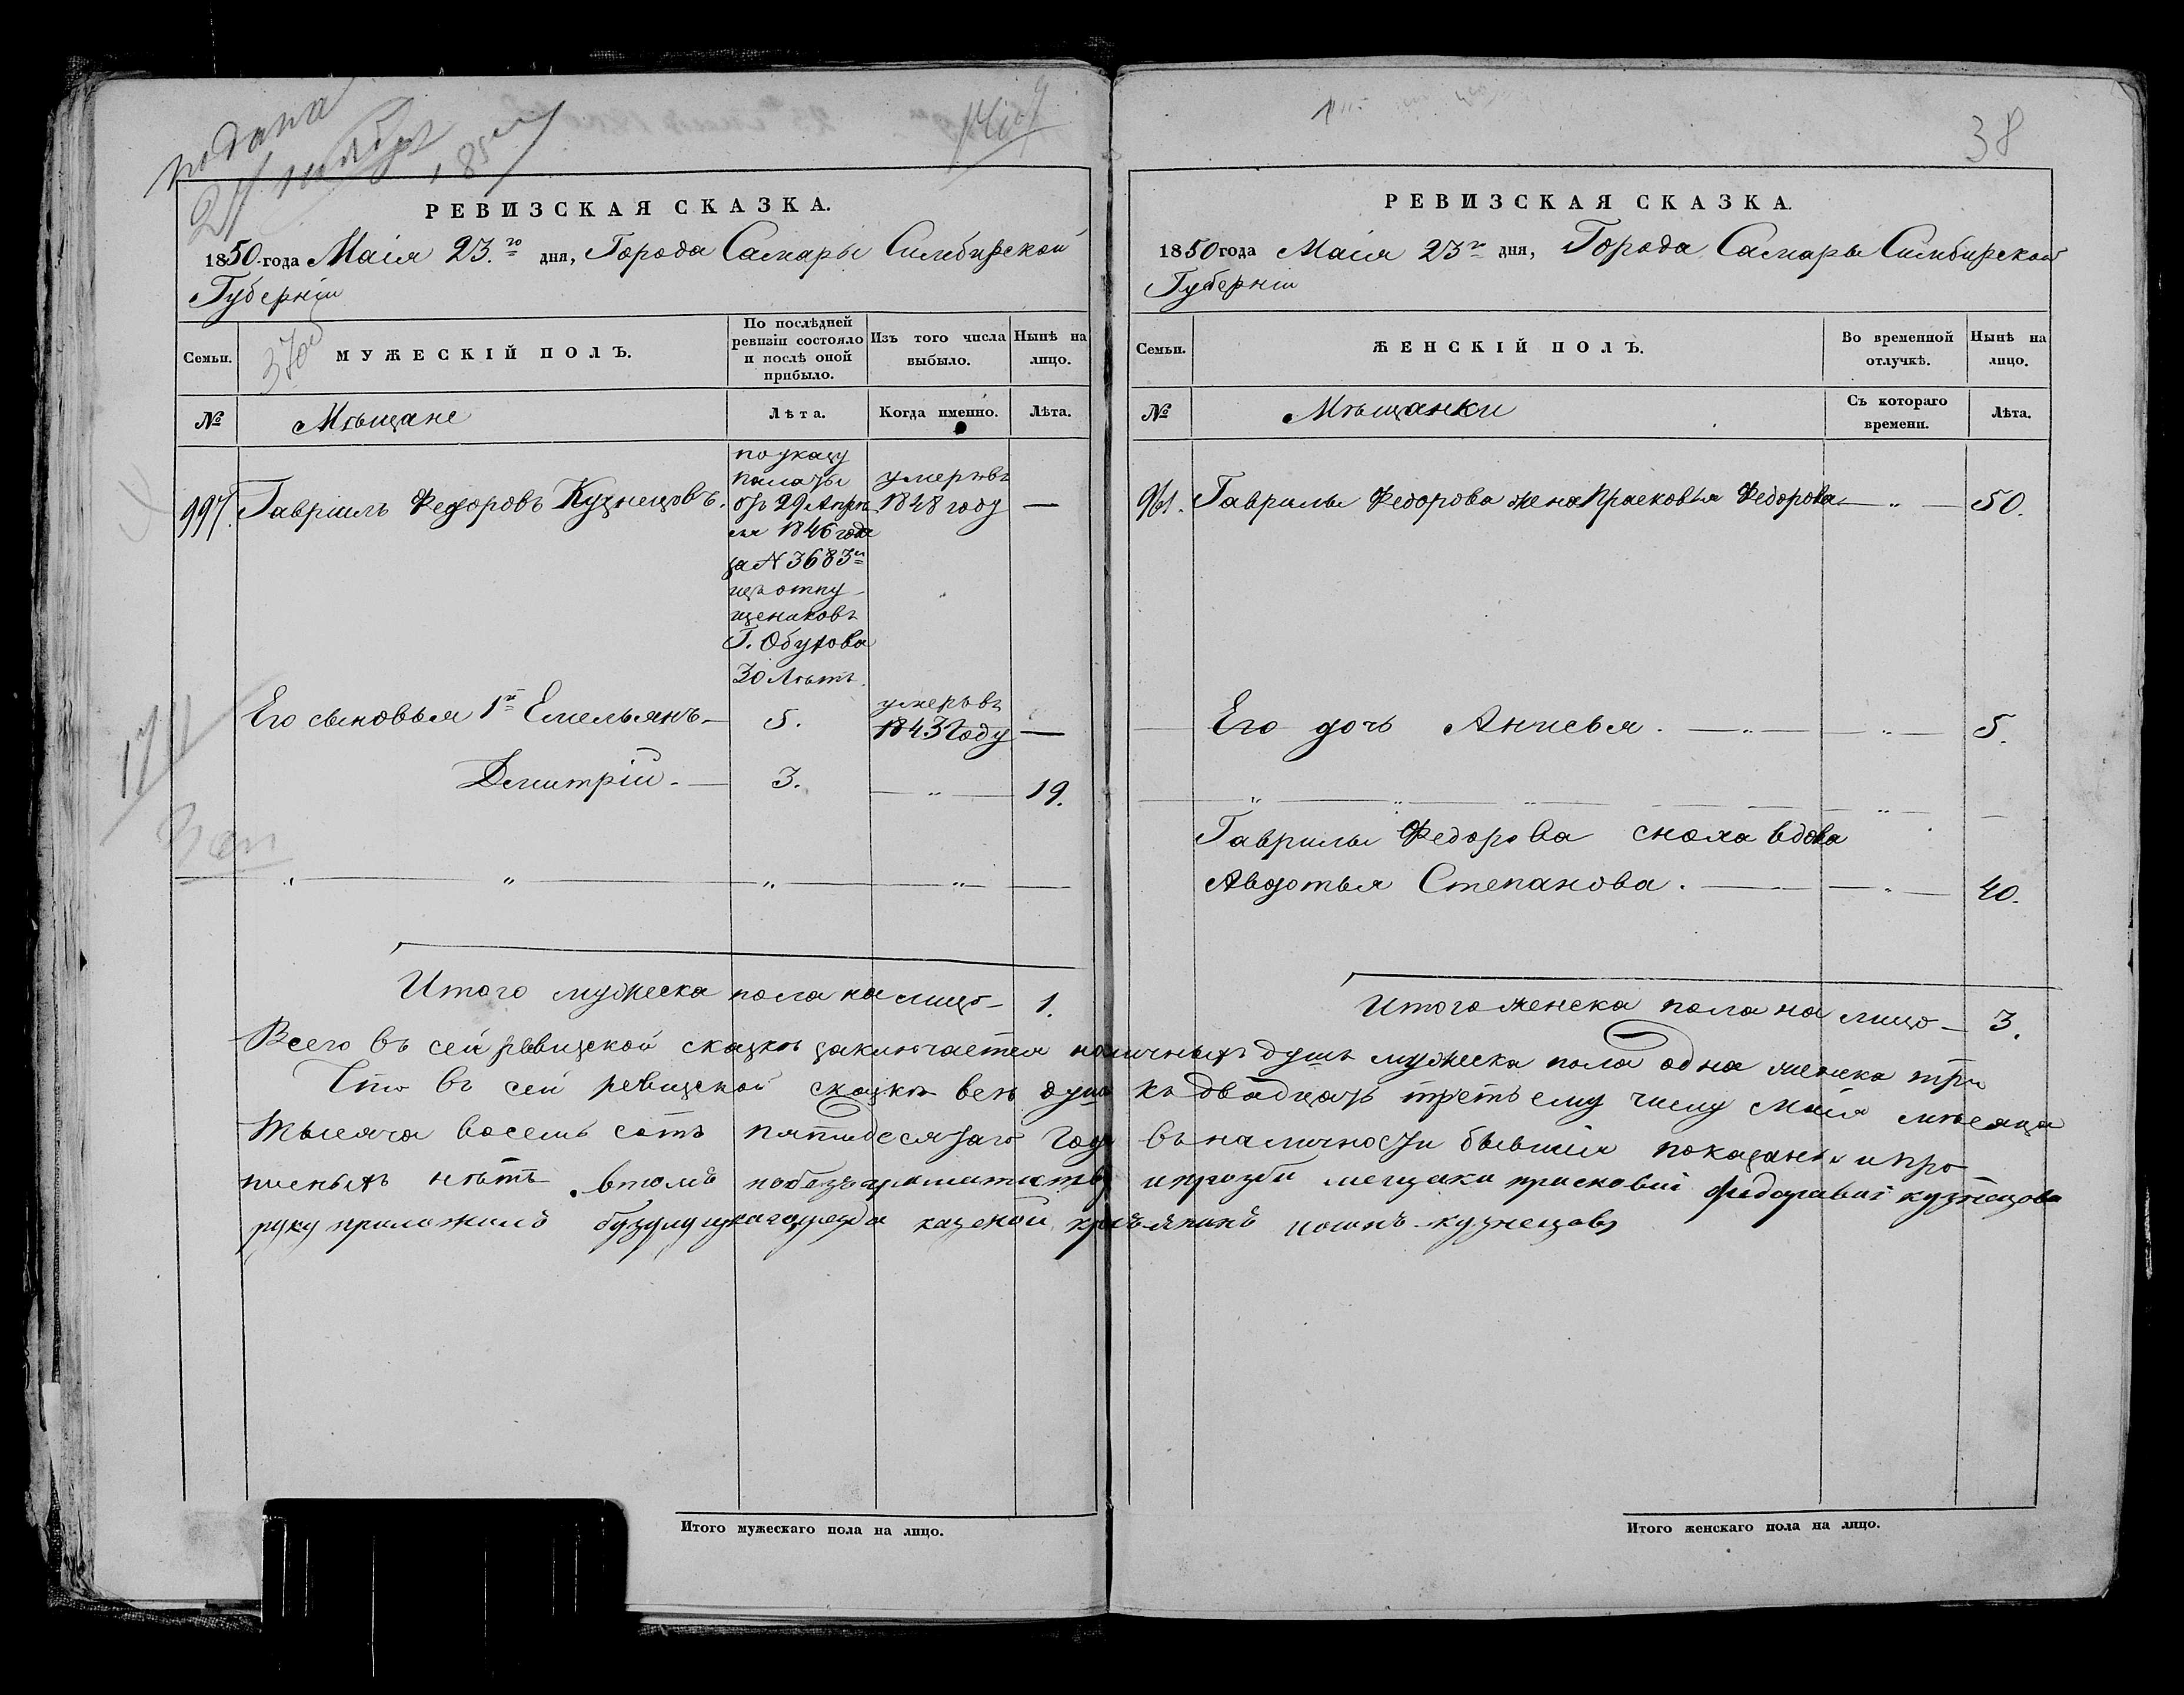 подана
24 ноября 1850
РЕВИЗСКАЯ СКАЗКА.
1850 года Маія 23.го дня, Города Самары Симбирской
Губерніи
Семьи.
МУЖЕСКІЙ ПОЛЪ.
По послѣдней
ревизіи состояло
и послѣ оной
прибыло.
Изъ того числа
выбыло.
Нынѣ на
лицо.
№
Мѣщане
Лѣта.
Когда именно.
Лѣта.
997. Гавріилъ Федоровъ Кузнецовъ.
по указу
палаты
отъ 29 Апрѣ
ля 1846 года
за № 3683м
изъ отпу-
щениковъ
Г. Обухова
30 лѣтъ.
умеръ въ
1848 году
—
Его сыновья 1й Емельянъ — 5.
умеръ въ
1843 году —
Дмитрій. — 3. — „ — 19.
Итого мужеска пола на лицо — 1.
Итого мужескаго пола на лицо.
38
РЕВИЗСКАЯ СКАЗКА.
1850 года Маія 23го дня, Города Самары Симбирской
Губерніи
Семьи.
ЖЕНСКІЙ ПОЛЪ.
Во временной
отлучкѣ.
Нынѣ на
лицо.
№
Мѣщанки
Съ котораго
времени.
Лѣта.
961. Гаврилы Федорова жена Прасковья Федорова — „ — 50.
Его дочь Анисья. — „ — „ — 5.
Гаврилы Федорова сноха вдова
Авдотья Степанова. — „ — 40.
Итого женска пола на лицо — 3.
Всего въ сей ревизской сказкѣ заключается наличныхъ душъ мужеска пола одна женска три
Что въ сей ревизской сказкѣ всѣ души къ двадцать третьему числу Маія мѣсяца
тысяча восемь сотъ пятидесятаго года въ наличности бывшія показаны и про-
писныхъ нѣтъ. втомъ побезграматству ипрозби мещаки прасковіи федаравай кузнецова
руку приложилъ бузулуцкагоуезда казеной крестьянинъ иоанъ кузнецовъ
Итого женскаго пола на лицо.